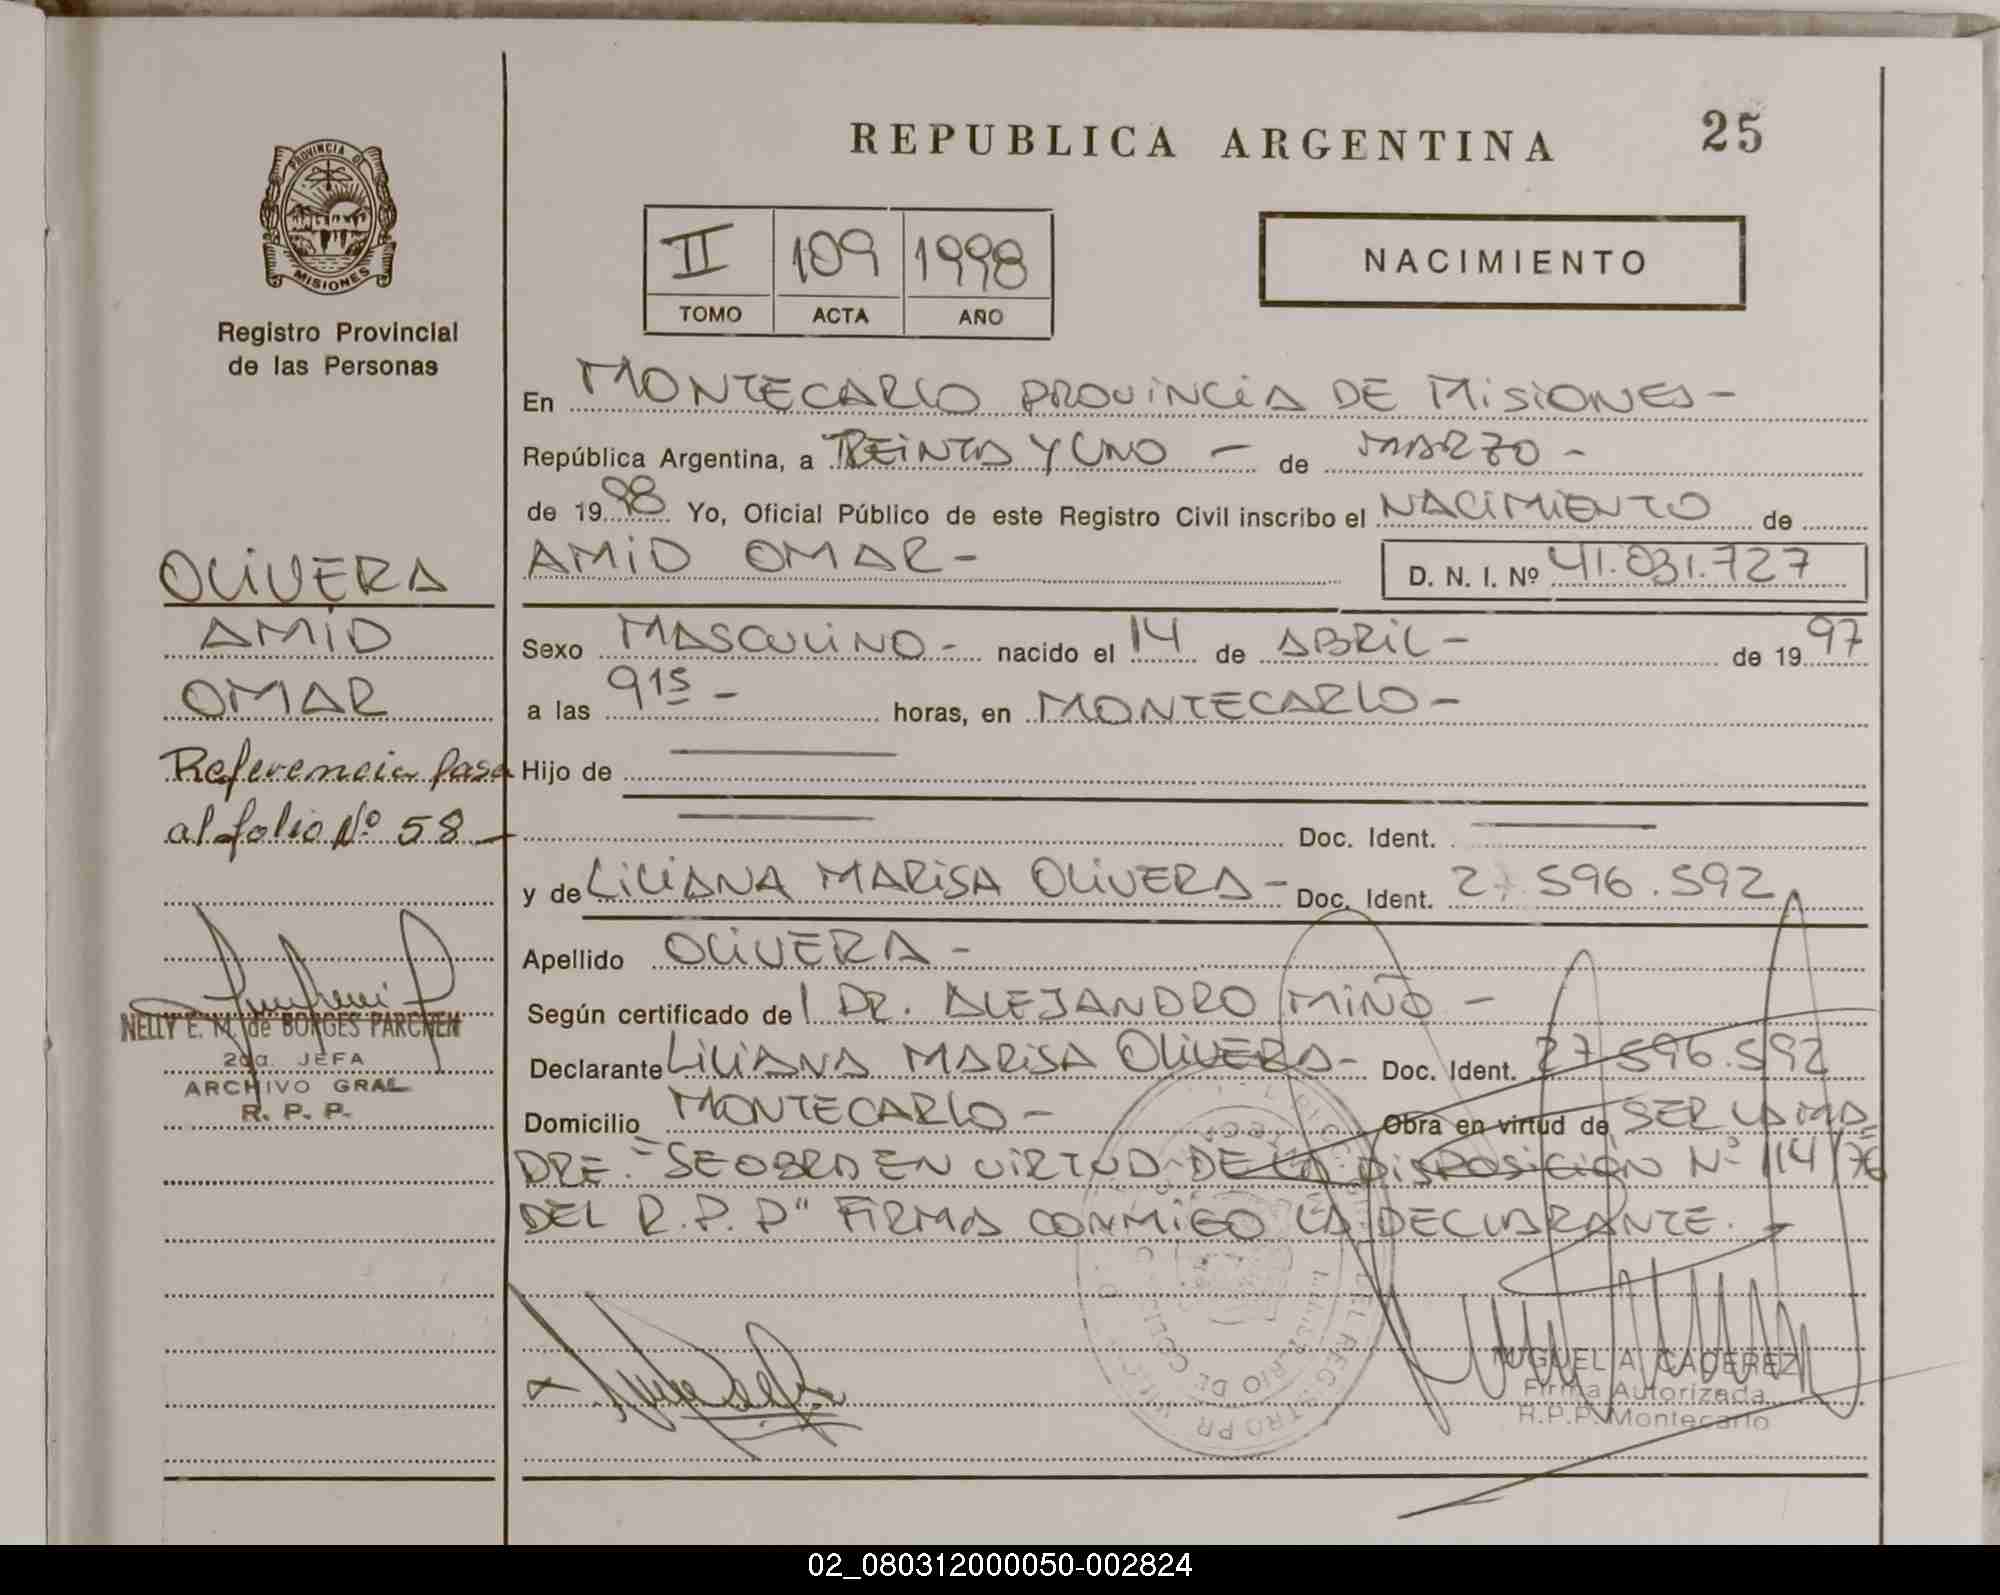 REPUBLICA ARGENTINA
25
PROVINCIA DE
MISIONES
Registro Provincial
de las Personas
II 109 1998
TOMO ACTA AÑO
NACIMIENTO
En MONTECARLO PROVINCIA DE MISIONES -
República Argentina, a TREINTA Y UNO - de MARZO -
de 19 98 Yo, Oficial Público de este Registro Civil inscribo el NACIMIENTO de
AMID OMAR - D. N. I. Nº 41.031.727
OLIVERA
AMID
OMAR
Referencia pasa
al folio Nº 58 -
NELLY E. M. de BORGES PARCHEN
2da. JEFA
ARCHIVO GRAL
R. P. P.
Sexo MASCULINO - nacido el 14 de ABRIL - de 19 97
a las 915 - horas, en MONTECARLO -
Hijo de
Doc. Ident.
y de LILIANA MARISA OLIVERA - Doc. Ident. 27.596.592
Apellido OLIVERA -
Según certificado del DR. ALEJANDRO MIÑO -
Declarante LILIANA MARISA OLIVERA - Doc. Ident. 27.596.592
Domicilio MONTECARLO - Obra en virtud de SER LA MA=
DRE.="SE OBRA EN VIRTUD DE LA DISPOSICION Nº 114/76
DEL R.P.P" FIRMA CONMIGO LA DECLARANTE. -
MIGUEL A. CADEREZ
Firma Autorizada
R.P.P. Montecarlo
02_080312000050-002824